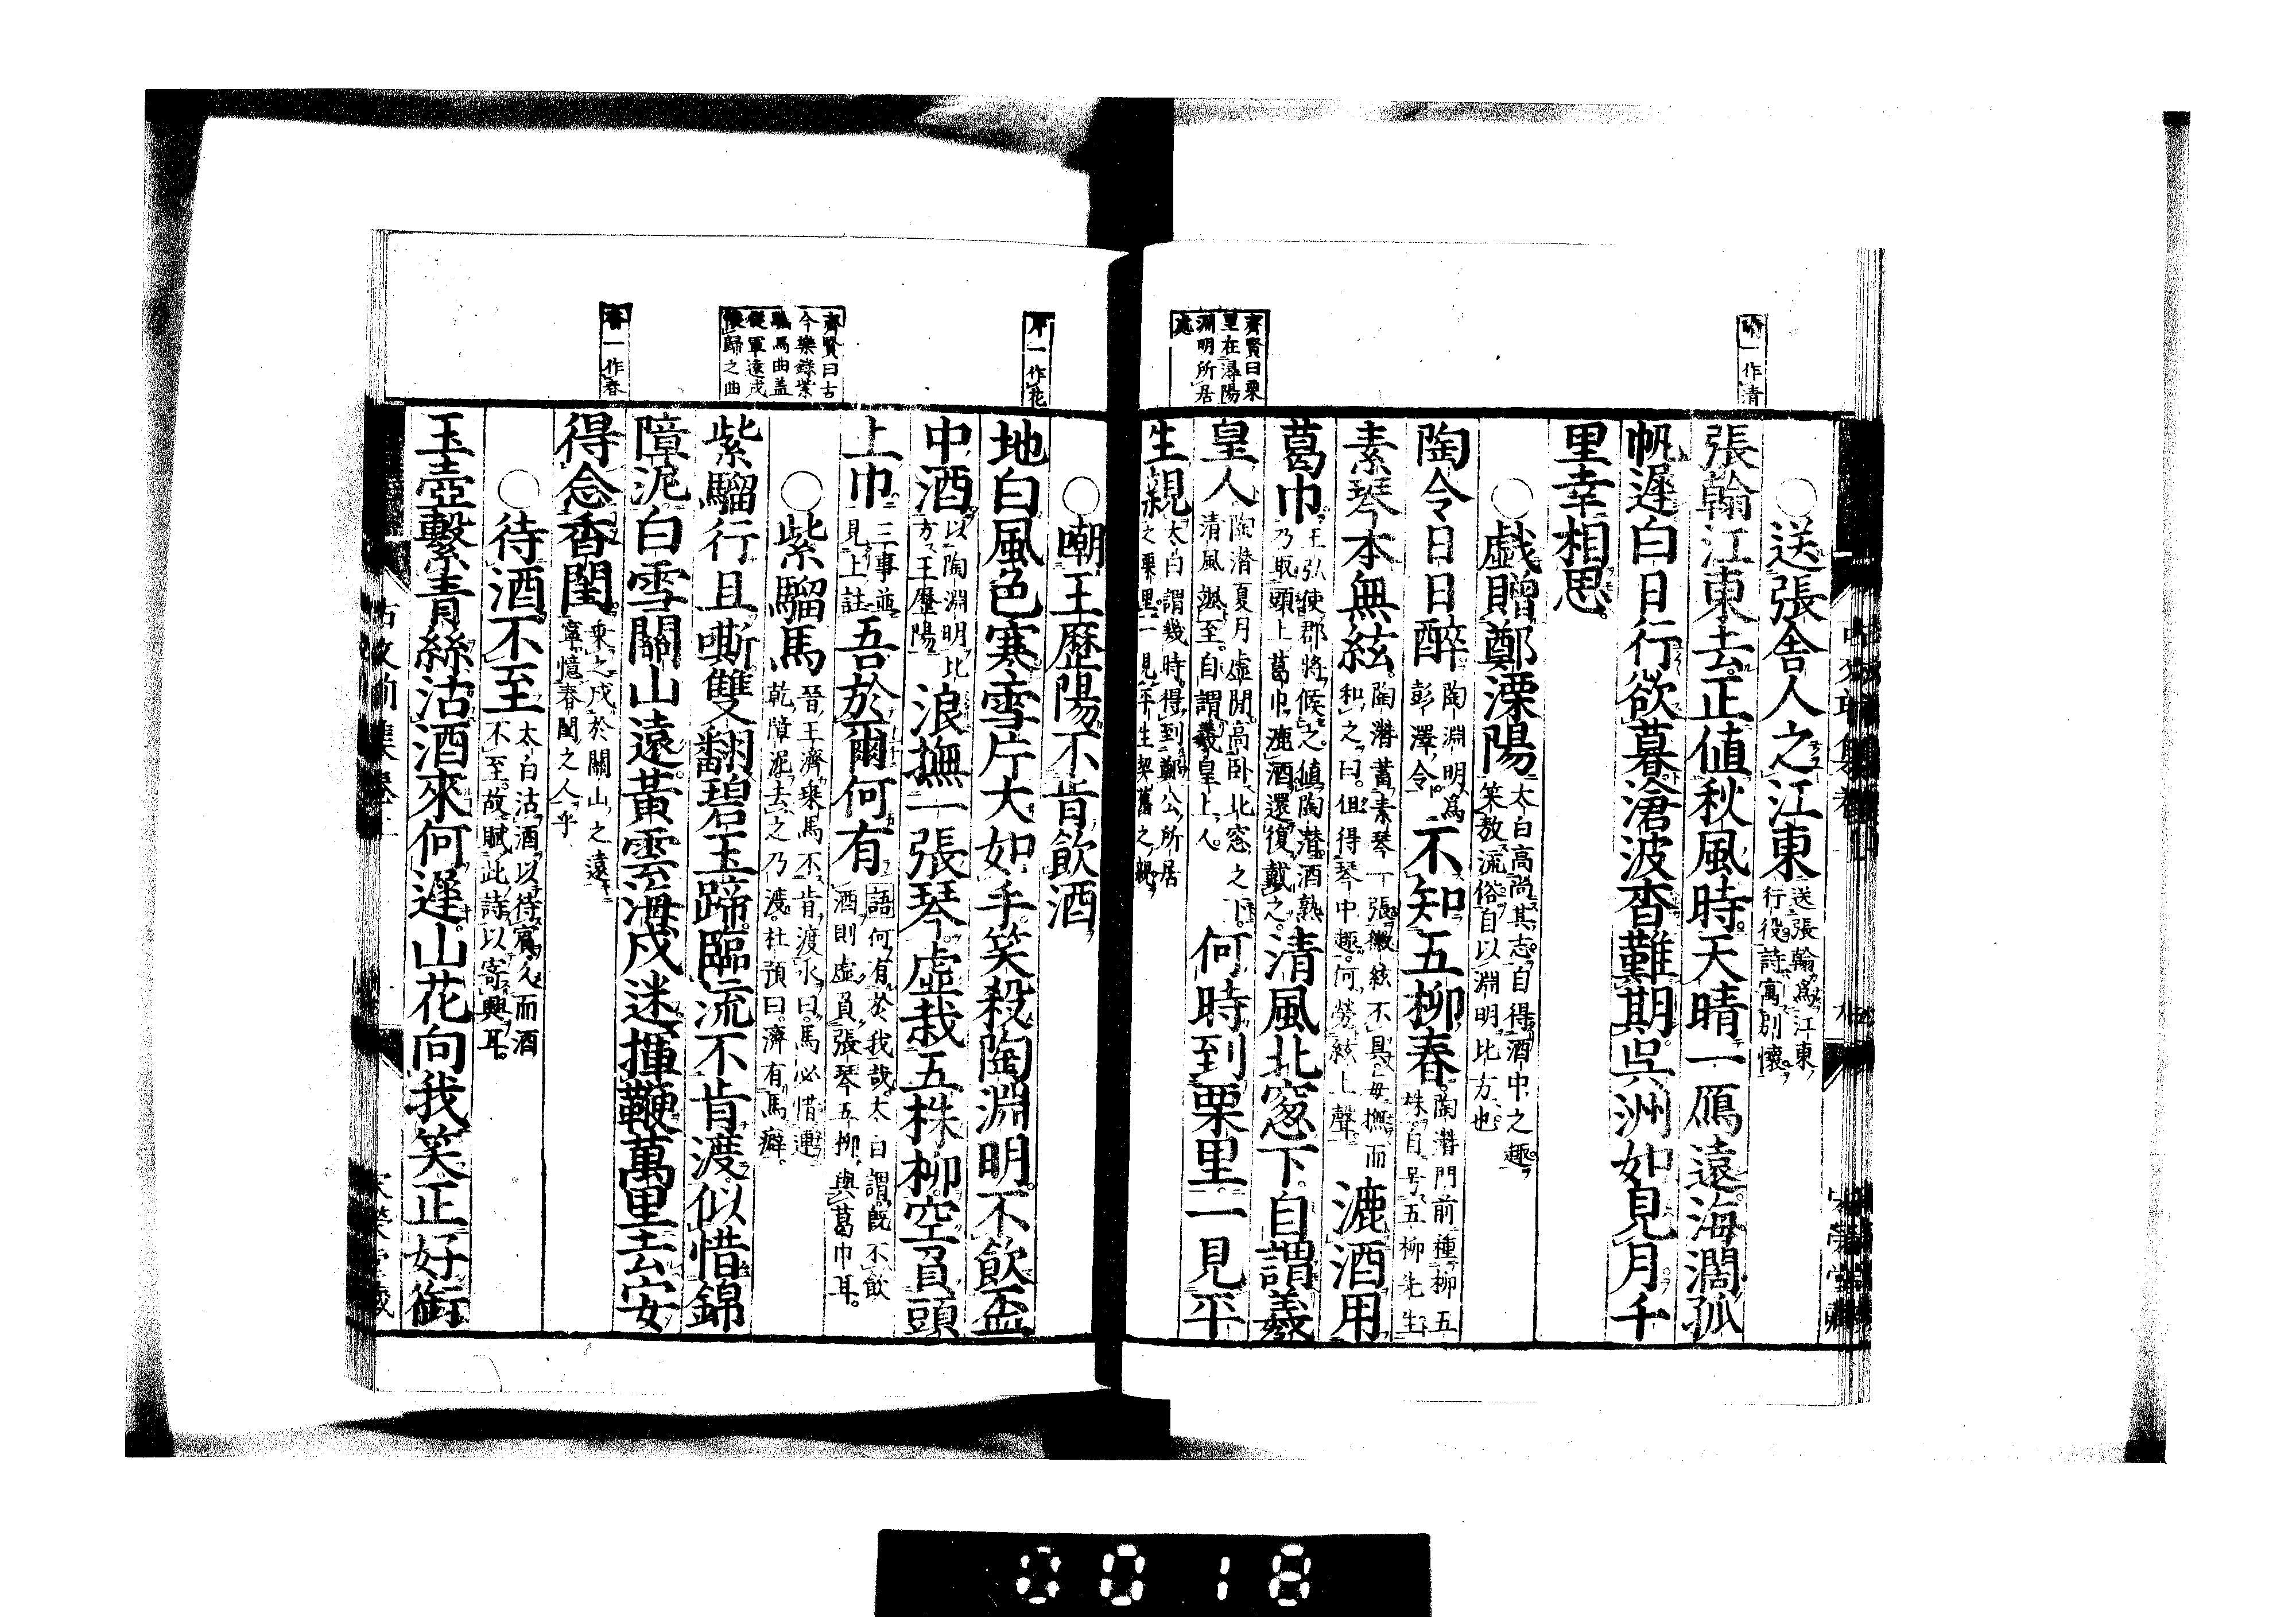 晴一作清
齊賢曰栗
里在潯陽
淵明所居
處
○送張舍人之江東 送張翰爲江東行役詩寓別懷
張翰江東去正値秋風時天晴一鴈遠海濶孤
帆遲白日行欲暮滄波杳難期吳洲如見月千
里幸相思
○戯贈鄭溧陽 太白高尚其志自得酒中之趣笑敖流俗自以淵明比方也
陶令日日醉 陶淵明爲彭澤令 不知五柳春 陶潜門前種柳五株自号五柳先生
素琴本無絃 陶潜蓄素琴一張徽絃不具毎撫而和之曰但得琴中趣何勞絃上聲 漉酒用
葛巾 王弘使郡將候之値陶潜酒熟乃取頭上葛巾漉酒還復戴之 清風北窓下自謂羲
皇人 陶潜夏月虛閒高卧北窓之下清風颯至自謂羲皇上人 何時到栗里一見平
生親 太白謂幾時得到鄭公所居之栗里一見平生契舊之親
片一作花
齊賢曰古
今樂錄紫
騮馬曲盖
從軍遠戍
懷歸之曲
香一作春
○嘲王歷陽不肯飮酒
地白風色寒雪片大如手笑殺陶淵明不飮盃
中酒 以陶淵明比方王歷陽 浪撫一張琴虛栽五株柳空負頭
上巾 三事並見上註 吾於爾何有 語何有於我哉太白謂既不飮酒則虛負張琴五柳與葛巾耳
○紫騮馬 晉王濟乘馬不肯渡水曰馬必惜連乾障泥去之乃渡杜預曰濟有馬癖
紫騮行且嘶雙翻碧玉蹄臨流不肯渡似惜錦
障泥白雪關山遠黃雲海戍迷揮鞭萬里去安
得念香閨 乘之戍於關山之遠寧憶春閨之人乎
○待酒不至 太白沽酒以待賓久而酒不至故賦此詩以寄興耳
玉壺繫青絲沽酒來何遲山花向我笑正好銜
0018